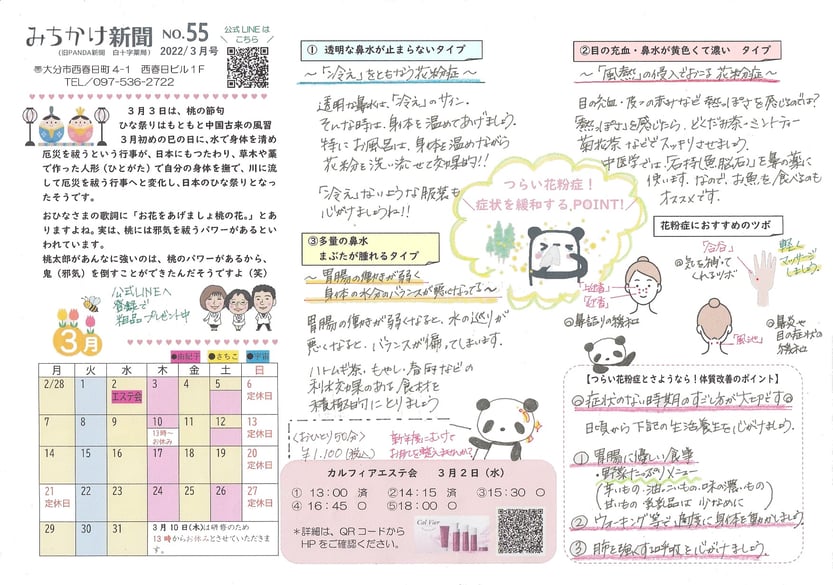 みちかけ新聞
（旧PANDA新聞　白十字薬局）
NO.55
2022/3月号
公式LINEは
こちら
〠大分市西春日町4-1　西春日ビル1F
TEL／097-536-2722
３月３日は、桃の節句
ひな祭りはもともと中国古来の風習
３月初めの巳の日に、水で身体を清め
厄災を祓うという行事が、日本にもつたわり、草木や藁
で作った人形（ひとがた）で自分の身体を撫で、川に流
して厄災を祓う行事へと変化し、日本のひな祭りとなっ
たそうです。
おひなさまの歌詞に「お花をあげましょ桃の花。」とあ
りますよね。実は、桃には邪気を祓うパワーがあるとい
われています。
桃太郎があんなに強いのは、桃のパワーがあるから、
鬼（邪気）を倒すことができたんだそうですよ（笑）
公式LINEへ
登録で
粗品プレゼント中
3月
●由紀子
●さちこ
●宇宙
月 火 水 木 金 土 日
2/28 1 2 3 4 5 6
エステ会 定休日
7 8 9 10 11 12 13
13時～
お休み
定休日
14 15 16 17 18 19 20
定休日
21 22 23 24 25 26 27
定休日 定休日
29 30 31
3月10日(木)は研修のため
13時からお休みとさせていただきま
す。
① 透明な鼻水が止まらないタイプ
～「冷え」をともなう花粉症～
透明な鼻水は、「冷え」のサイン。
そんな時は、身体を温めてあげましょう。
特にお風呂は、身体を温めながら
花粉を洗い流せて効果的!!
「冷え」ないような服装も
心がけましょうね!!
③多量の鼻水
まぶたが腫れるタイプ
～胃腸の働きが弱く
身体の水分のバランスが悪くなってる～
胃腸の働きが弱くなると、水の巡りが
悪くなると、バランスが偏ってしまいます。
ハトムギ茶・もやし・春雨などの
利水効果のある食材を
積極的にとりましょう
〈おひとり50分〉
¥1,100(税込)
新年度にむけて
お肌を整えませんか?
カルフィアエステ会　３月２日（水）
①13：00 済　②14：15 済　③15：30 〇
④16：45 〇　⑤18：00 〇
＊詳細は、QRコードから
HPをご確認ください。
Cal Vier
②目の充血・鼻水が黄色くて濃い　タイプ
～「風熱」の侵入でおこる花粉症～
目の充血・皮フの赤みなど熱っぽさを感じるのでは?
熱っぽさを感じたら、どくだみ茶・ミントティー
菊花茶などでスッキリさせましょう。
使います。なので、お魚を食べるのも
オススメです。
つらい花粉症！
症状を緩和する、POINT!
花粉症におすすめのツボ
「合谷」
◎気を補って
くれるツボ
軽く
マッサージ
しましょう。
「迎香」
◎鼻詰りの緩和
「風池」
◎鼻炎や
目の症状の
緩和
【つらい花粉症とさようなら！体質改善のポイント】
◎症状のない時期のすごし方が大切です◎
日頃から下記の生活養生を心がけましょう。
① 胃腸に優しい食事
・野菜たっぷりメニュー
（辛いもの・油っこいもの・味の濃いもの）
甘いもの 乳製品は 少なめに
② ウォーキング等で、適度に身体を動かしましょう。
③ 肺を強くする呼吸を心がけましょう。